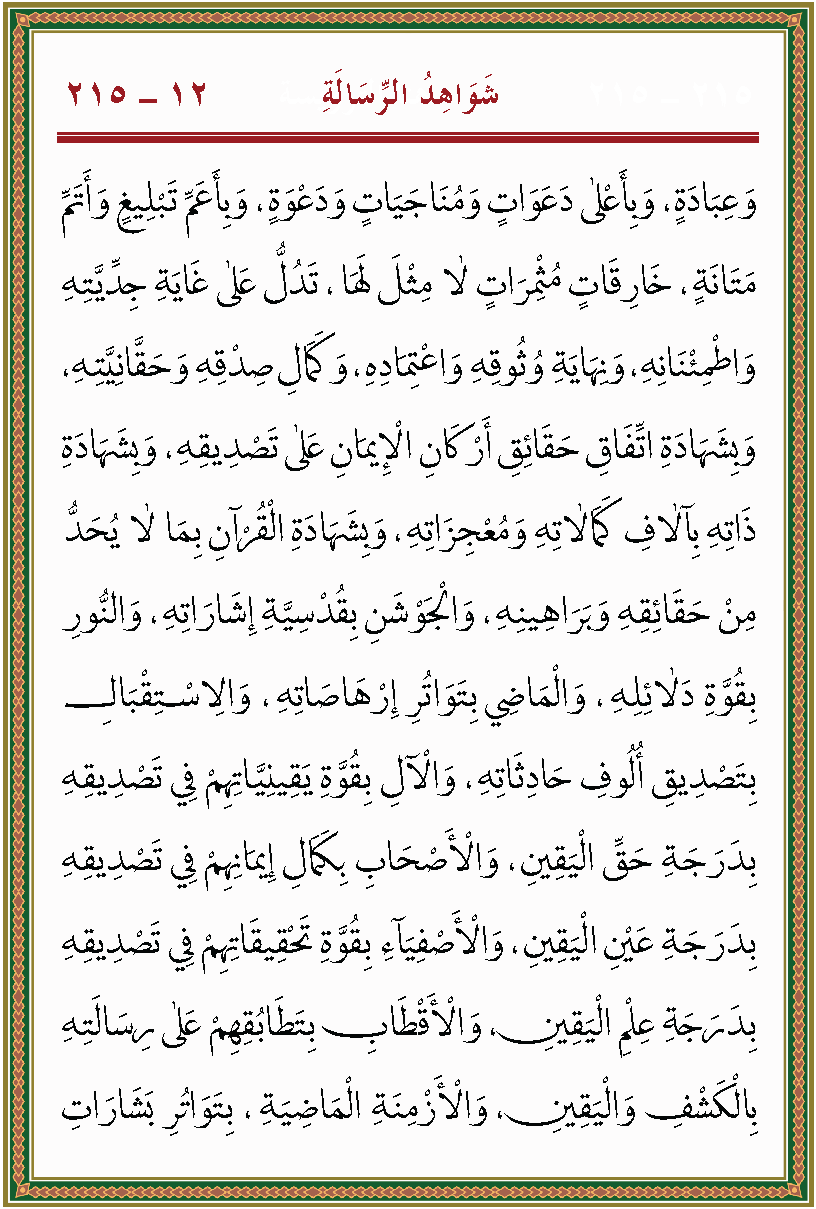 شَوَاهِدُ الرِّسَالَةِ ١٢ ـ ٢١٥
وَعِبَادَةٍ، وَبِأَعْلٰى دَعَوَاتٍ وَمُنَاجَيَاتٍ وَدَعْوَةٍ، وَبِأَعَمِّ تَبْلِيغٍ وَأَتَمِّ
مَتَانَةٍ، خَارِقَاتٍ مُثْمِرَاتٍ لَا مِثْلَ لَهَا، تَدُلُّ عَلٰى غَايَةِ جِدِّيَّتِهِ
وَاطْمِئْنَانِهِ، وَنِهَايَةِ وُثُوقِهِ وَاعْتِمَادِهِ، وَكَمَالِ صِدْقِهِ وَحَقَّانِيَّتِهِ،
وَبِشَهَادَةِ اتِّفَاقِ حَقَائِقِ أَرْكَانِ الْإِيمَانِ عَلٰى تَصْدِيقِهِ، وَبِشَهَادَةِ
ذَاتِهِ بِآلَافِ كَمَالَاتِهِ وَمُعْجِزَاتِهِ، وَبِشَهَادَةِ الْقُرْآنِ بِمَا لَا يُحَدُّ
مِنْ حَقَائِقِهِ وَبَرَاهِينِهِ، وَالْجَوْشَنِ بِقُدْسِيَّةِ إِشَارَاتِهِ، وَالنُّورِ
بِقُوَّةِ دَلَائِلِهِ، وَالْمَاضِي بِتَوَاتُرِ إِرْهَاصَاتِهِ، وَالِاسْتِقْبَالِ
بِتَصْدِيقِ أُلُوفِ حَادِثَاتِهِ، وَالْآلِ بِقُوَّةِ يَقِينِيَّاتِهِمْ فِي تَصْدِيقِهِ
بِدَرَجَةِ حَقِّ الْيَقِينِ، وَالْأَصْحَابِ بِكَمَالِ إِيمَانِهِمْ فِي تَصْدِيقِهِ
بِدَرَجَةِ عَيْنِ الْيَقِينِ، وَالْأَصْفِيَآءِ بِقُوَّةِ تَحْقِيقَاتِهِمْ فِي تَصْدِيقِهِ
بِدَرَجَةِ عِلْمِ الْيَقِينِ، وَالْأَقْطَابِ بِتَطَابُقِهِمْ عَلٰى رِسَالَتِهِ
بِالْكَشْفِ وَالْيَقِينِ، وَالْأَزْمِنَةِ الْمَاضِيَةِ، بِتَوَاتُرِ بَشَارَاتِ